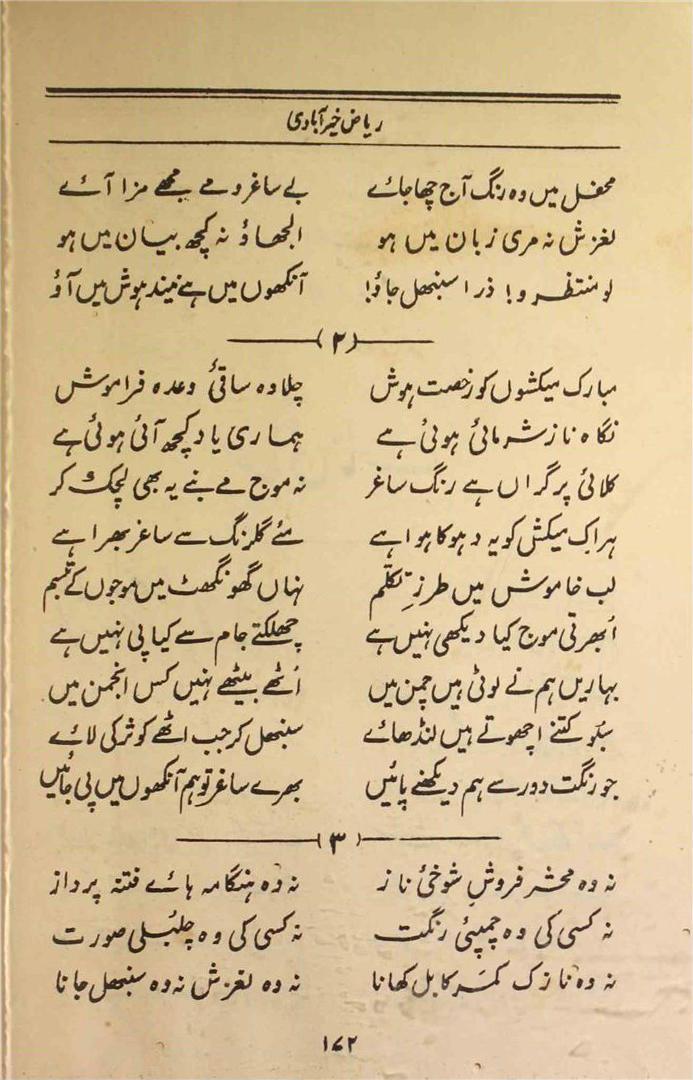 ریاض خیرآبادی
محفل میں وہ رنگ آج چھا جائے بے ساغر و مے مجھے مزا آئے
لغزش نہ مری زبان میں ہو الجھاؤ نہ کچھ بیان میں ہو
لو منتظرو! ذرا سنبھل جاؤ! آنکھوں میں ہے نیند ہوش میں آؤ
(۲)
مبارک میکشوں کو رخصت ہوش چلا وہ ساقیٔ وعدہ فراموش
نگاہ ناز شرمائی ہوئی ہے ہماری یاد کچھ آئی ہوئی ہے
کلائی پر گراں ہے رنگ ساغر نہ موج مے بنے یہ بھی لچک کر
ہر اک میکش کو یہ دہوکا ہوا ہے مئے گلرنگ سے ساغر بھرا ہے
لب خاموش میں طرزِ تکلّم نہاں گھونگھٹ میں موجوں کے تبسم
اُبھرتی موج کیا دیکھی نہیں ہے چھلکتے جام سے کیا پی نہیں ہے
بہاریں ہم نے لوٹی ہیں چمن میں اُٹھے بیٹھے نہیں کس انجمن میں
سبو کتنے اچھوتے ہیں لنڈھائے سنبھل کر جب اٹھے کوثر کی لائے
جو رنگت دور سے ہم دیکھنے پائیں بھرے ساغر تو ہم آنکھوں میں پی جائیں
(۳)
نہ وہ محشر فروشِ شوخیٔ ناز نہ وہ ہنگامہ ہائے فتنہ پرداز
نہ کسی کی وہ چمپئی رنگت نہ کسی کی وہ چلبُلی صورت
نہ وہ نازک کمَر کا بل کھانا نہ وہ لغزش نہ وہ سنبھل جانا
۱۷۲